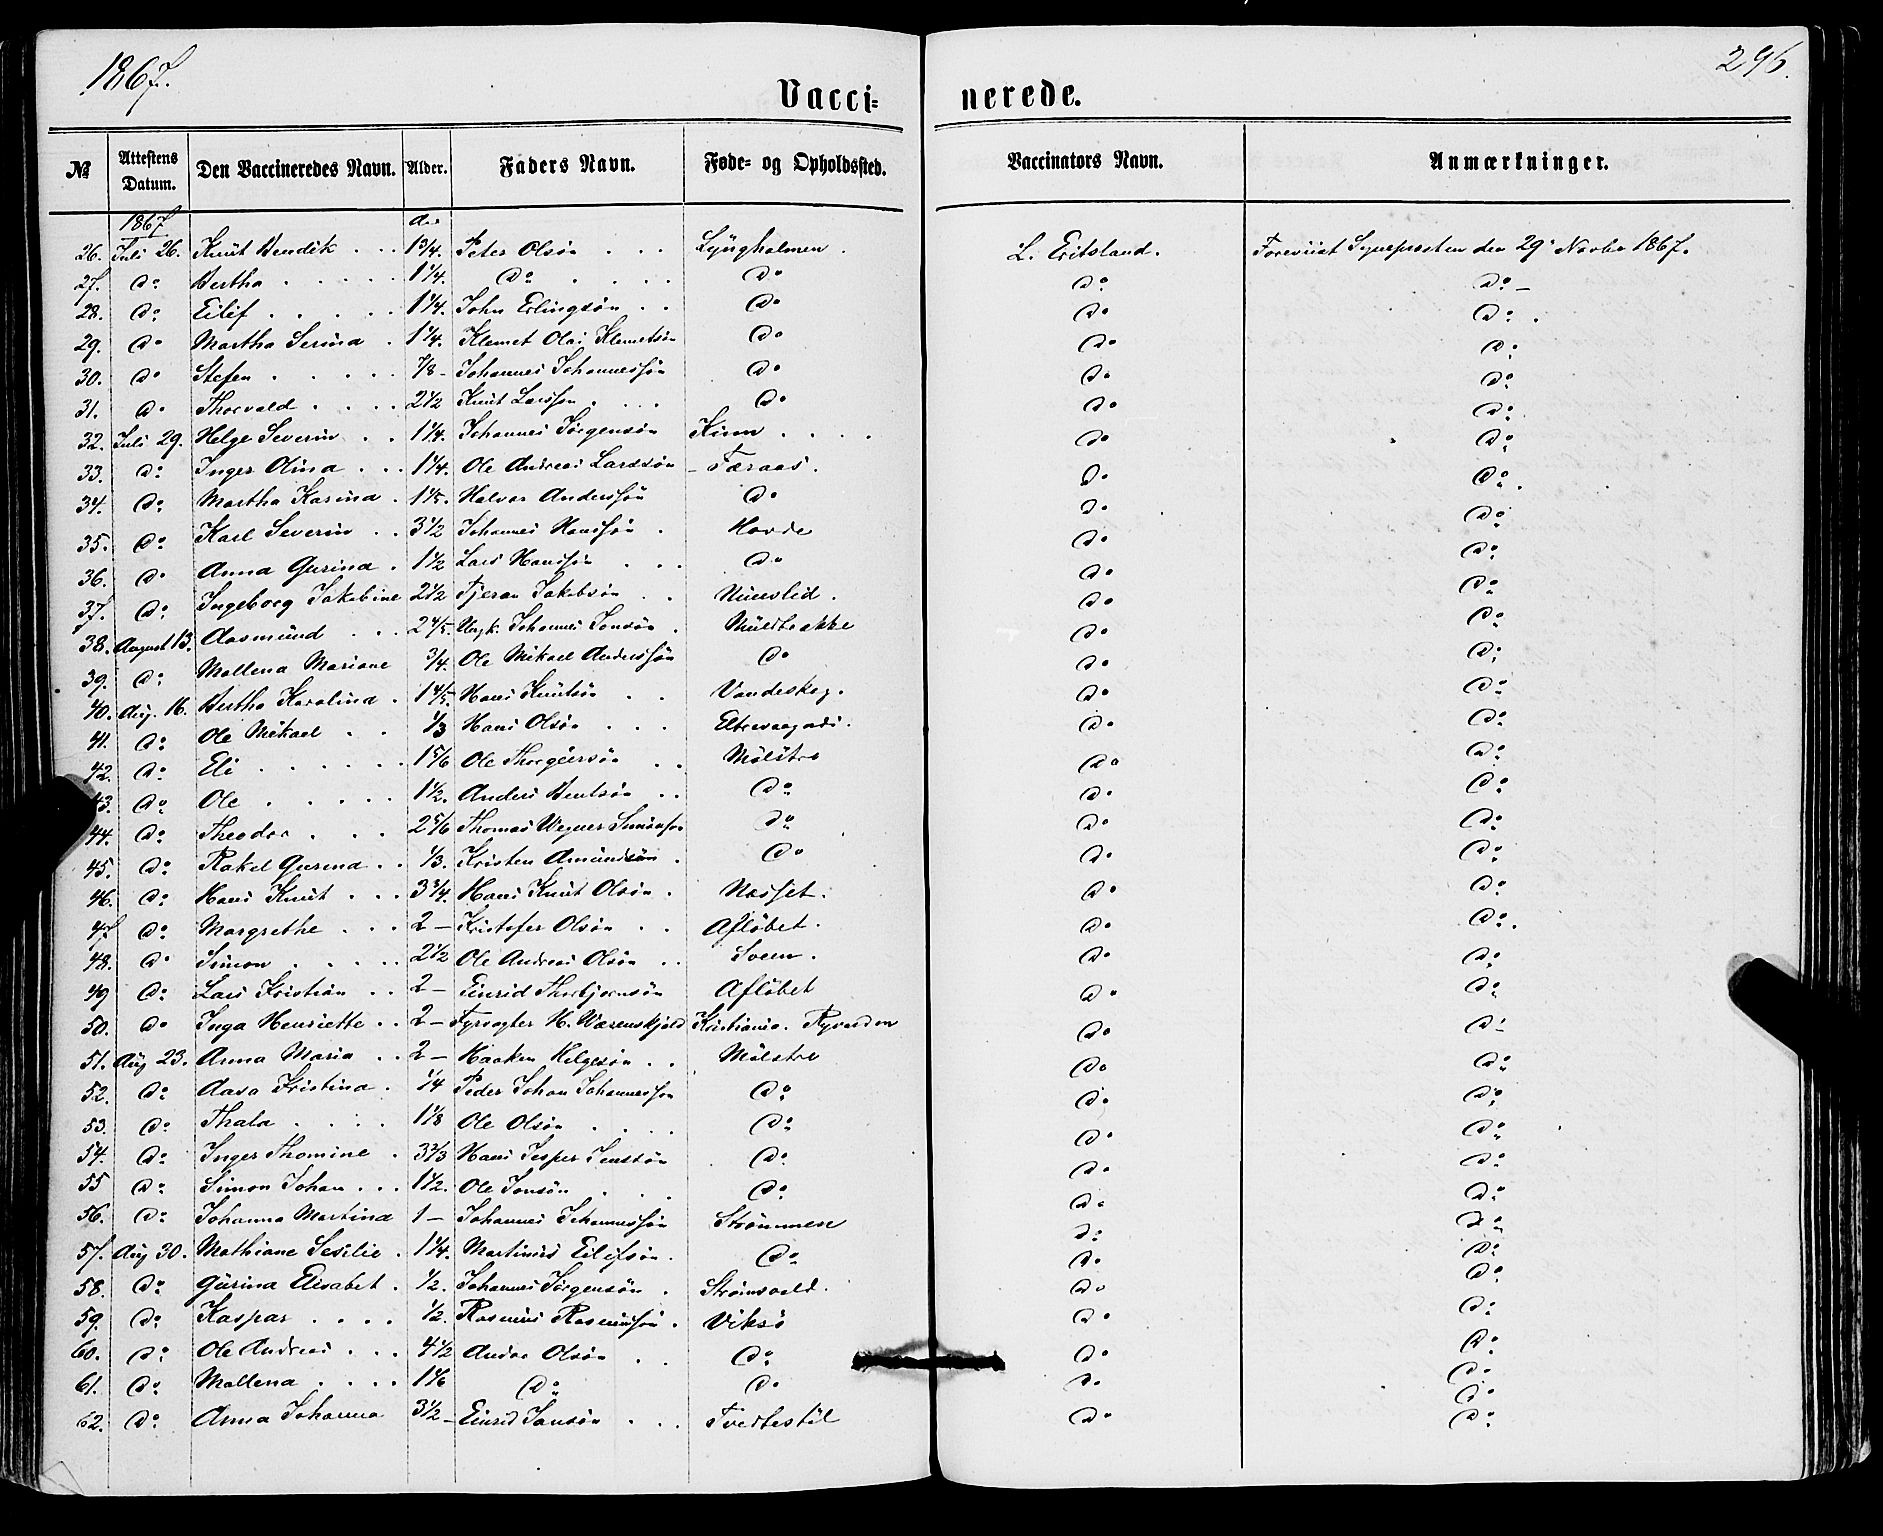 1867. 296.
Vacci= nerede.
№ Attestens Datum. Den Vaccineredes Navn. Alder. Faders Navn. Føde= og Opholdssted. Vaccinators Navn. Anmærkninger.
1867 Aar
26. Juli 26. Knut Bendik . . . 1 3/4. Peter Olsøn . . . Lyngholmen . L. Eritsland. Forevist Synepresten den 29 Novbr 1867.
27. do Bertha . . . . . 1 1/4. do . . . . do do do –
28. do Eilif . . . . . 1 1/4. John Erlingsøn . . do do do .
29. do Martha Serina . 1 1/4. Klemet Olai Klemetsøn do do do
30. do Stefen . . . . . 7/8 – Johannes Johannessøn do do do
31. do Thorvald . . . . 2 1/2 Knut Larssøn . . . do do do
32. Juli 29. Helge Severin . . 1 1/4. Johannes Jørgensøn Kinn . . . . do do
33. do Inger Olina . . . 1 1/4. Ole Andreas Larssøn – Færaas . do do
34. do Martha Karina . 1 1/5. Halvor Anderssøn do do do .
35. do Karl Severin . . 3 1/2 Johannes Hanssøn . Hovde do do
36. do Anna Gurina . 1 1/2 Lars Hanssøn . . . do do do
37. do Ingeborg Jakobine 2 1/2 Tjeran Jakobsøn . . do do
38. August 13. Aasmund . . . 2 4/5. Ungk. Johannes Jonsøn . do do
39. do Mallena Mariane 3/4. Ole Mikael Anderssøn do do do
40. Aug. 16. Bertha Karolina . 1 4/5. Hans Knutsøn . . Vandeskog. do do
41. do Ole Mikael . . 1/3 Hans Olsøn . . . do do
42. do Eli . . . . . . 1 5/6 Ole Thorgeirsøn . . Mølstre do do
43. do Ole . . . . . 1 1/2. Anders Bentsøn . . do do do
44. do Theodor . . . 2 5/6 Thomas Wegner Simonsøn do do do
45. do Rakel Gurina . . 1/3. Kristen Amundsøn . do do do
46. do Hans Knut . . . 3 3/4. Hans Knut Olsøn . Nesset . do do
47 do Margrethe . . . 2 – Kristofer Olsøn . . Afløbet . do do .
48. do Simon . . . . . 2 1/2 Ole Andreas Olsøn . . Sveen . do do
49 do Lars Kristian . . 2 – Einrid Thorbjørnsøn Afløbet do do
50. do Inga Henriette . . 2 – Fyrvogter H. Wærenskjold Kristiania. Ryvarden do do
51. Aug 23. Anna Maria . . 2 – Haaken Helgesøn . . Mølstre do do
52. do Aasa Kristina . 1/4 Peder Johan Johannessøn do do do
53. do Thala . . . . 1 1/8 Ole Olsøn . . . . do do do
54. do Inger Thomine . 3 2/3 Hans Jesper Jenssøn do do do
55 do Simon Johan . . . 1 1/2. Ole Jonsøn . . . do do do
56. do Johanna Martina 1 – Johannes Johannessøn Strømmen do do
57. Aug 30. Mathiane Sesilie . 1 1/4. Martinus Eilifsøn . do do do
58. do Gurina Elisabet . 1/2. Johannes Jørgensøn . Strømsvold . do do
59. do Kaspar . . . . 1/2. Rasmus Rasmussøn . Viksø do do
60. do Ole Andreas . . . 4 1/2 Andor Olsøn . . do do do
61. do Mallena . . . . 1 1/6 do do do do
62. do Anna Johanna 3 1/2 – Einrid Jansøn . . . Tveitestøl do do